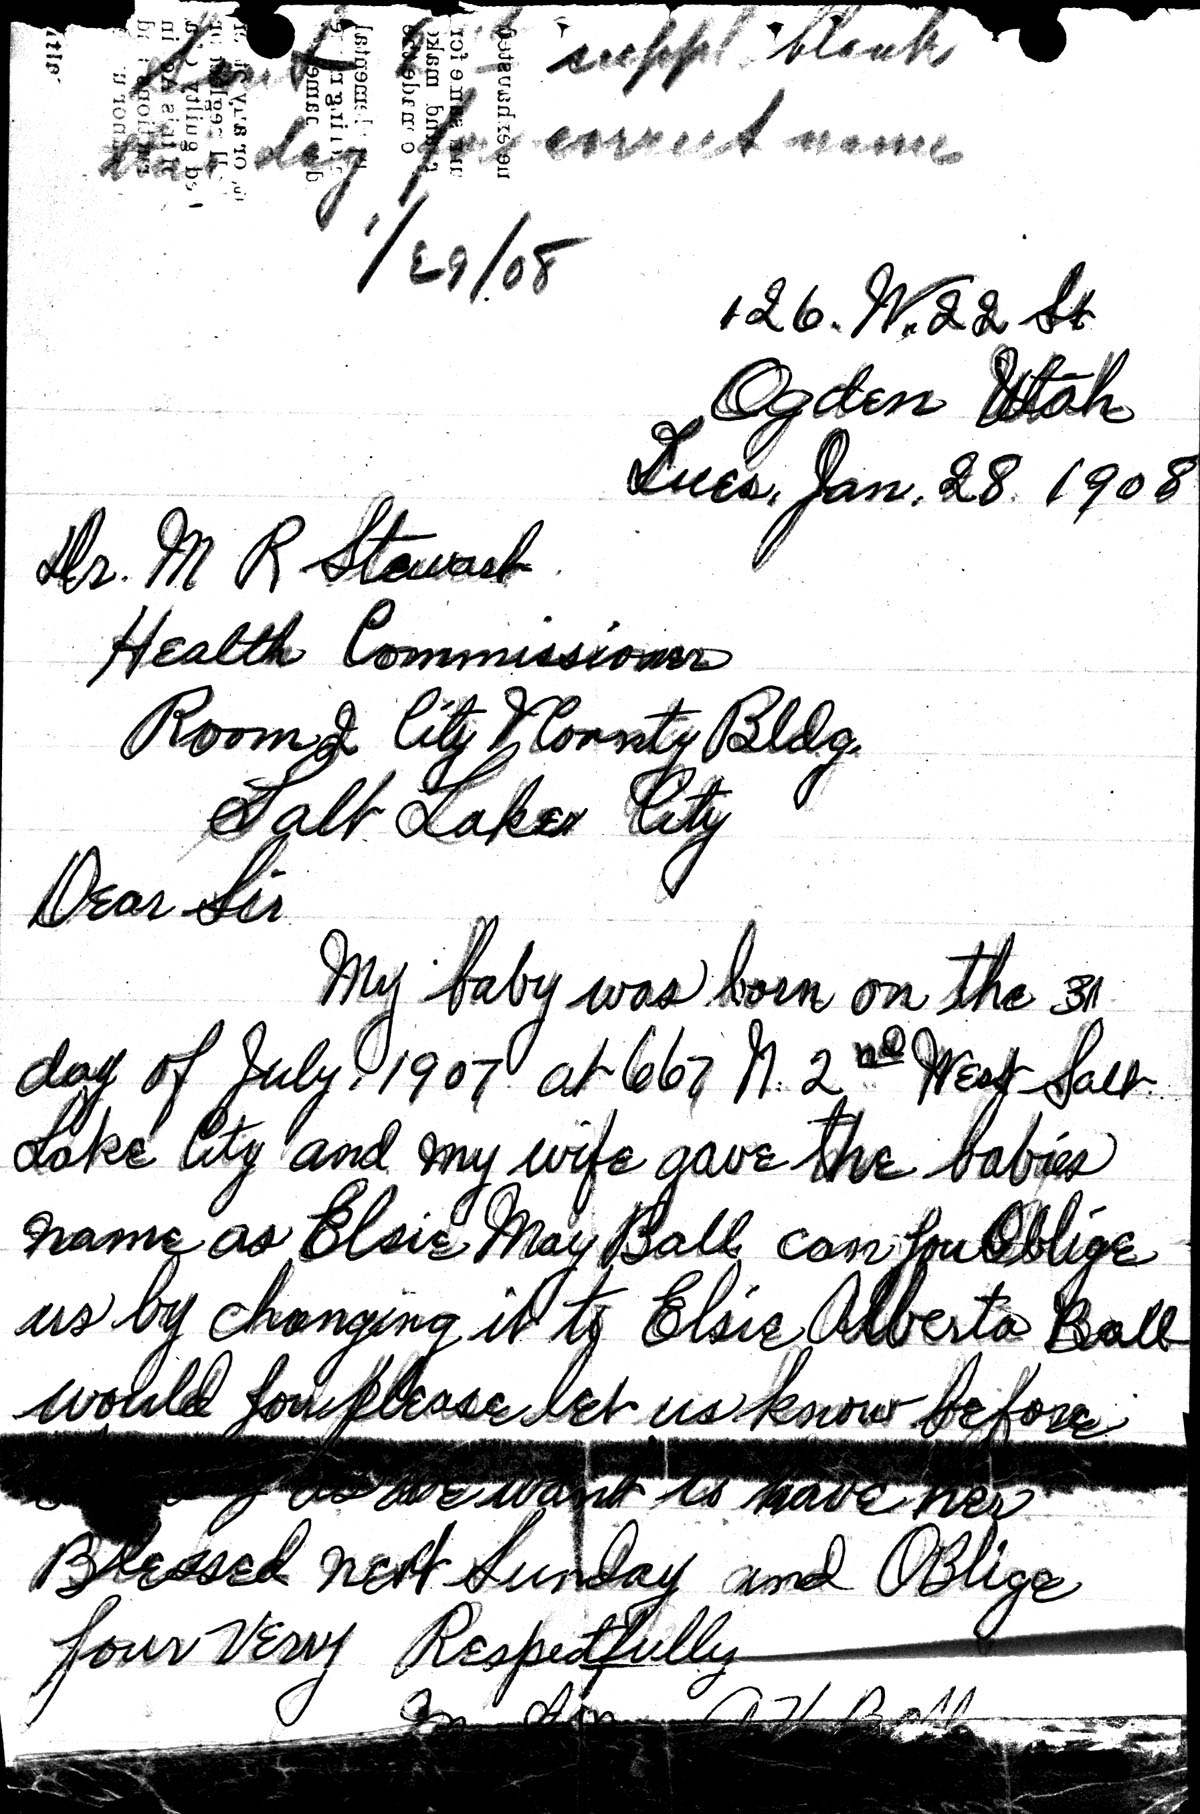 suppl. blank
day for correct name
1/29/08
126. W. 22 St
Ogden Utah
Tues. Jan. 28. 1908
Dr. M R Stewart
Health Commissioner
Room 2 City & County Bldg.
Salt Lake City
Dear Sir
My baby was born on the 31
day of July. 1907 at 667 N. 2nd West Salt
Lake City and my wife gave the babies
name as Elsie May Ball can you Oblige
us by changing it to Elsie Alberta Ball
would you please let us know before
as we want to have her
Blessed next Sunday and Oblige
your very Respectfully
Ball